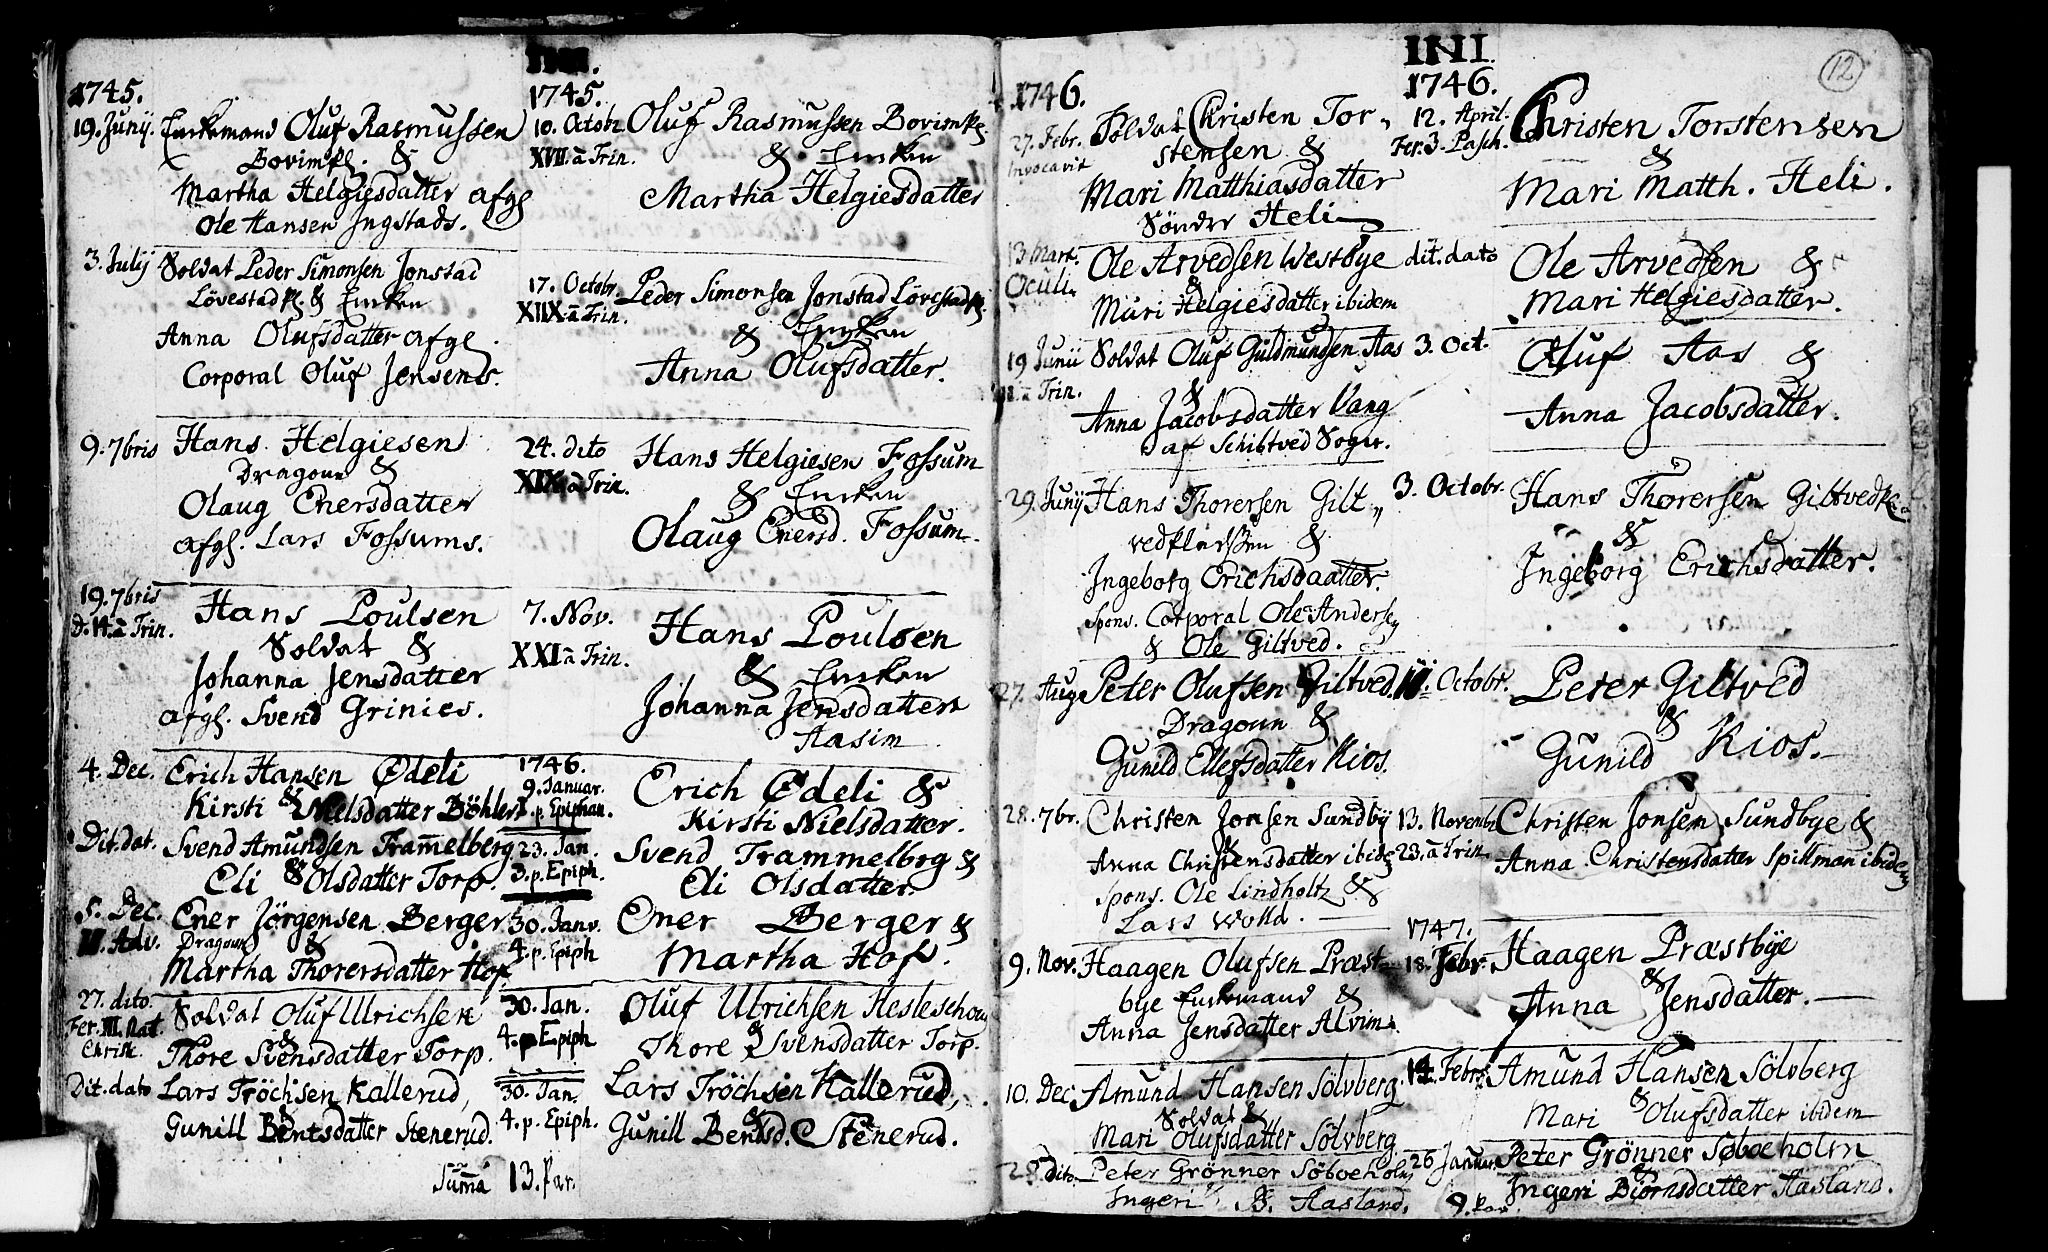 1745.
19. Junij. Enckemand Oluf Rasmussen
Bovimpl. &
Martha Helgiesdatter afgl
Ole Hansen Ingstads.
3. Julij Soldat Peder Simonsen Jonstad
Lövestadpl. & Encken
Anna Olufsdatter afgl.
Corporal Oluf Jensens.
9. 7bris Hans Helgiesen
Dragoun &
Olaug Enersdatter
afgl. Lars Fossums.
19. 7bris Hans Poulsen
D. 14. à Trin. Soldat &
Johanna Jensdatter
afgl. Svend Grinies.
4. Dec. Erich Hansen Ødeli
&
Kirsti Nielsdatter Böhler
Dit. dat. Svend Amundsen Tramelberg
Eli & Olsdatter Torp.
5. Dec. Ener Jörgensen Berger
II. Adv. Dragoun &
Martha Thorersdatter Hof.
27. dito. Soldat Oluf Ulrichsen
Fer. III. Nat. &
Christ. Thore Svensdatter Torp.
Dit. dato Lars Tröchsen Kallerud,
&
Gunill Bentsdatter Stenerud.
1745.
10. Octobr. Oluf Rasmussen Bovimpl.
XVII. à Trin. & Encken
Martha Helgiesdatter
17. Octobr. Peder Simonsen Jonstad Lövestadpl.
XIIX. à Trin. & Encken
Anna Olufsdatter.
24. dito Hans Helgiesen Fossum
XIX. à Trin. & Encken
Olaug Enersd. Fossum.
7. Nov. Hans Poulsen
XXI à Trin. & Encken
Johanna Jensdatter
Aasim
1746.
9. Januar. Erich Ødeli &
1. p. Epiphan. Kirsti Nielsdatter.
23. Jan. Svend Trammelbrg &
3. p. Epiph. Eli Olsdatter.
30. Janv. Ener Berger &
4. p. Epiph Martha Hof.
30. Jan. Oluf Ulrichsen Hesleschou
4. p. Epiph &
Thore Svensdatter Torp.
30. Jan. Lars Tröchsen Kallerud,
4. p. Epiph. &
Gunill Bentsd. Stenerud.
Suma 13. Par.
12
1746.
27. Febr. Soldat Christen Tor„
Invocavit stensen &
Mari Matthiasdatter
Sönder Heli
13 Mart. Ole Arvedsen Westbye
Oculi &
Mari Helgiesdatter ibidem
19 Junii Soldat Oluf Guldmundsen Aas
à Trin. &
Anna Jacobsdatter Vang
af Schibtved Sogn.
29. Junij Hans Thorersen Gilt„
vedpladssen &
Ingeborg Erichsdaatter.
Spons. Corporal Ole Andersen
& Ole Giltved.
27. Aug Peter Olufsen Giltved
Dragoun &
Gunild Ellefsdatter Kios.
28. 7br. Christen Jonsen Sundby
&
Anna Christensdatter ibidem
Spons. Ole Lindholtz &
Lars Wolld.
9. Nov. Haagen Olufsen Præst
bye Enckemand &
Anna Jensdatter Alvim.
10. Dec Amund Hansen Sölvberg
Soldat &
Mari Olufsdatter Sölvberg
28. dito. Peter Grönner Söboeholm
Ingeri & B. Aasland.
1746.
12. April. Christen Torstensen
Fer. 3. Pasch. &
Mari Matth. Heli.
dit. dato Ole Arvedsen &
Mari Helgiesdatter.
3. Oct. Oluf Aas &
Anna Jacobsdatter.
3. Octobr. Hans Thorersen Giltvedpl.
&
Ingeborg Erichsdatter.
Octobr. Peter Giltved
&
Gunild Kios.
13. Novemb. Christen Jonsen Sundbye &
23. à Trin Anna Christensdatter Spillman ibidem
1747.
18. Febr. Haagen Præstbye
&
Anna Jensdatter.
14. Febr. Amund Hansen Sölvberg
&
Mari Olufsdatter ibidem
26 Januar. Peter Grönner Søboeholm
&
Ingeri Biörnsdatter Aasland.
9. Par.